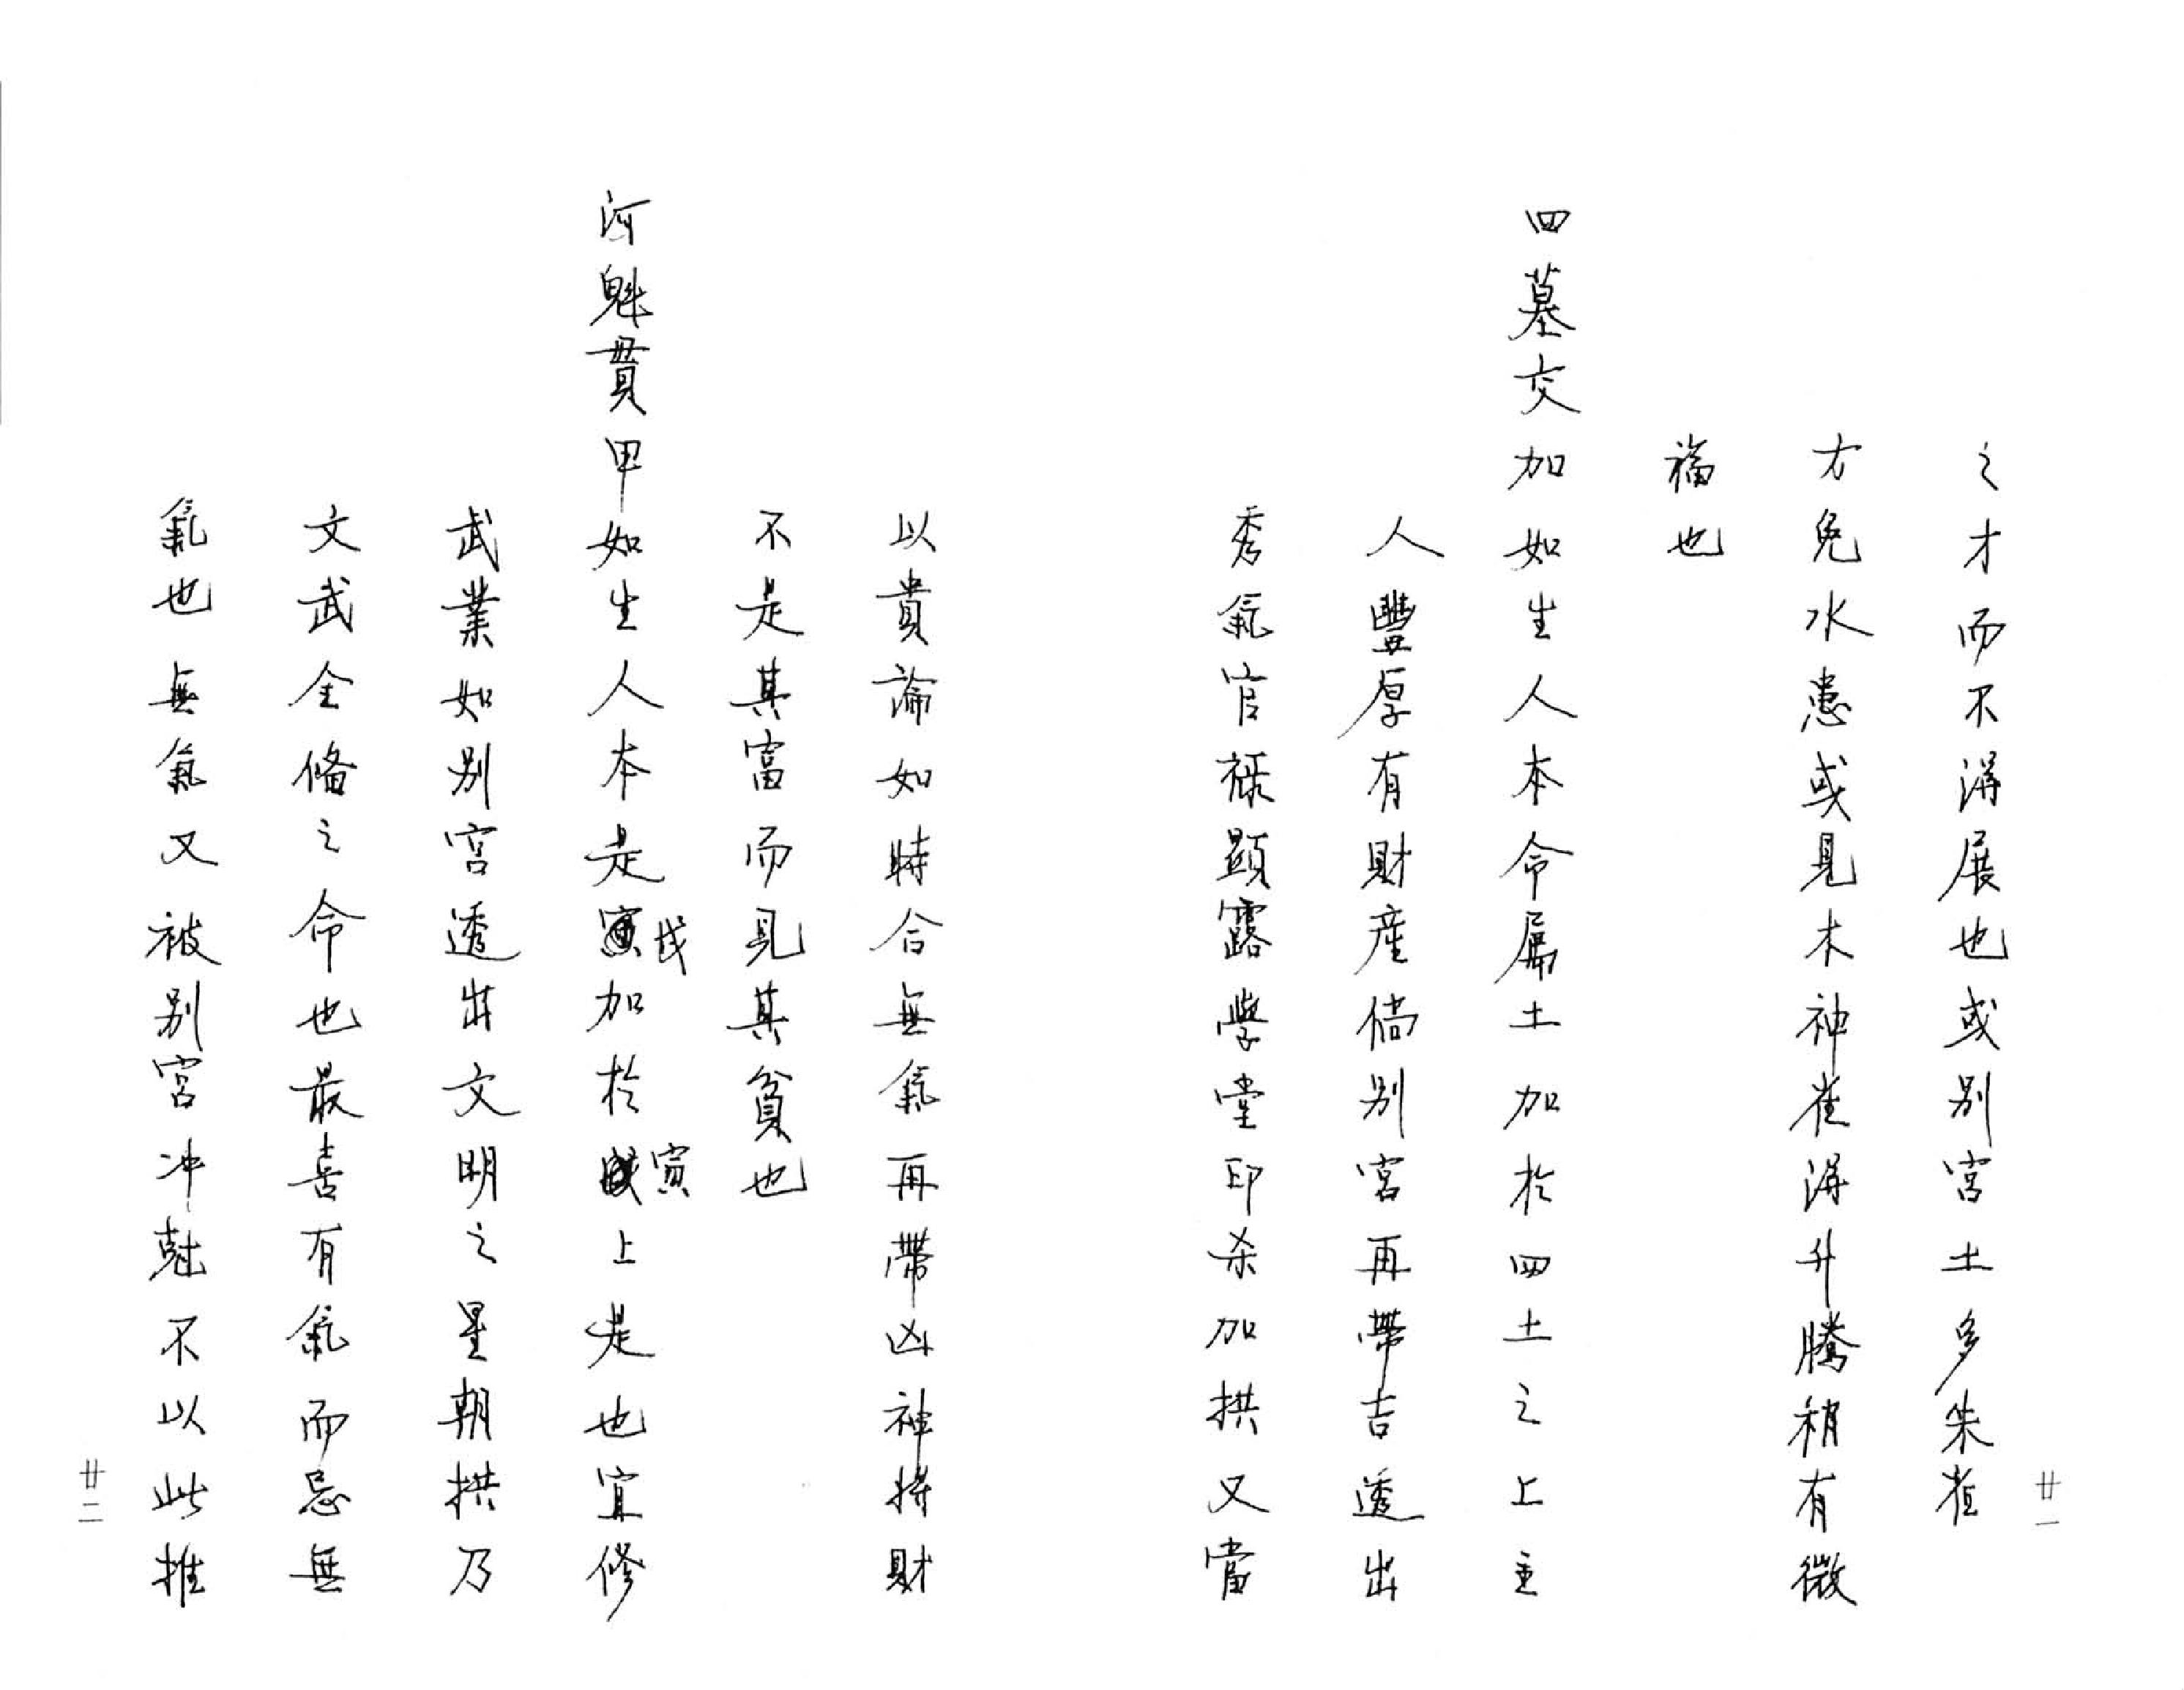 之才而不得展也或別宮土多朱雀
方免水患或見木神雀得升騰稍有微
福也
四墓交加如生人本命屬土加於四土之上主
人豐厚有財產倘別宮再帶吉透出
秀氣官祿顯露學堂印杀加拱又當
廿一
以貴論如時合無氣再帶凶神將財
不是其富而見其貧也
河魁貫甲如生人本是戌加於寅上是也宜修
武業如別宮透出文明之星朝拱乃
文武全俻之命也最喜有氣而忌無
氣也無氣又被別宮冲尅不以此推
廿二